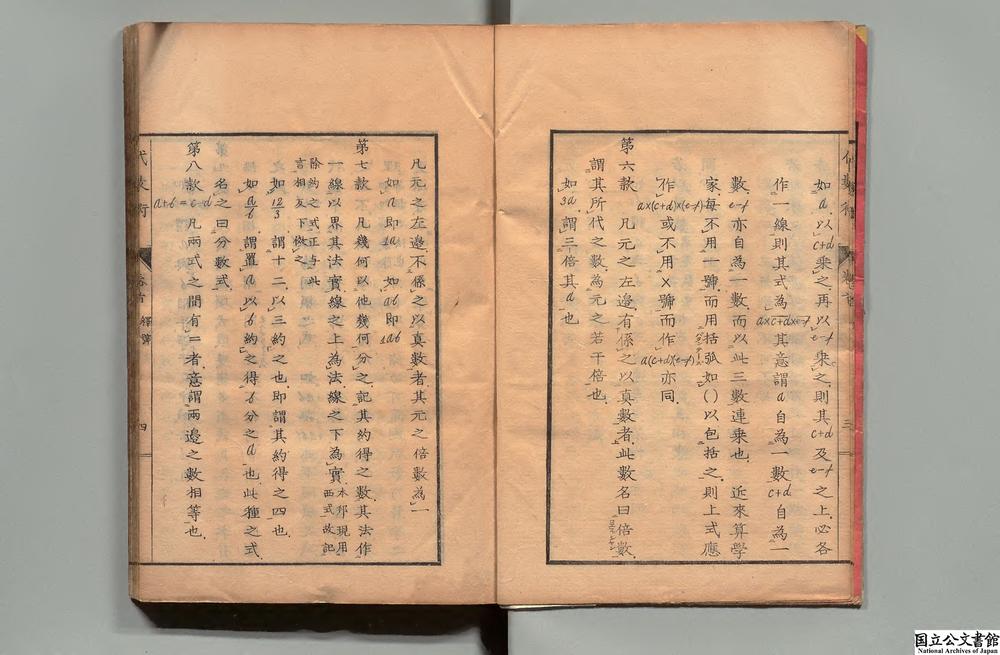 如a,以c+d乘之,再以e-f乘之,則其c+d及e-f之上,必各
作一線則其式為a×c+d×e-f其意謂a自為一數c+d自為一
數,e-f亦自為一數,而以此三數連乘也. 近來算學
家,每不用一號而用括弧,如()以包括之,則上式應
作a×(c+d)×(e-f)或不用×號而作a(c+d)(e-f)亦同.
第六款 凡元之左邊,有係之以真數者,此數名曰倍數,
謂其所代之數,為元之若干倍也.
如3a謂三倍其a也
三
凡元之左邊,不係之以真數者,其元之倍數為一
如a即1a 如ab即1ab
第七款 凡幾何以他幾何分之,記其約得之數,其法作
一線以界其法實線之上為法,線之下為實,本邦現用西式故記
除約之式正与此言相反下倣之
如12/3謂十二,以三約之也,即謂其約得之四也.
如a/b謂置a以b約之,得b分之a也,此種之式
名之曰分數式.
第八款 a+b=c-d凡兩式之間有=者,意謂兩邊之數相等也.
代數術 卷首 釋號 四
国立公文書館
National Archives of Japan